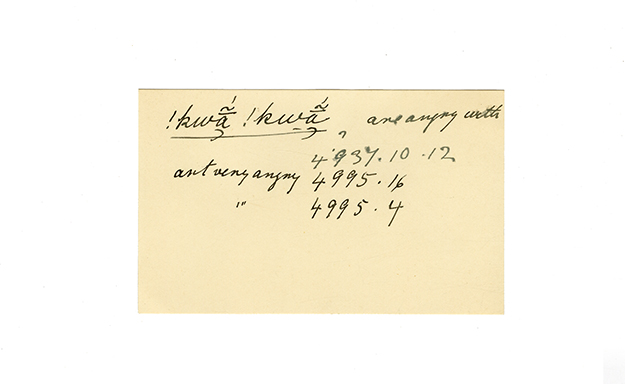 !kwã́ !kwã́ , are angry with
4937.10.12
art very angry 4995.16
" 4995.4